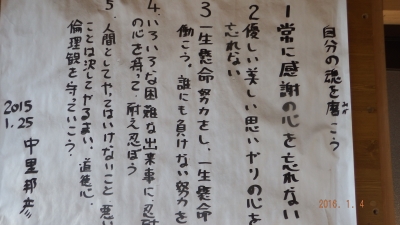 自分の魂を磨こう
みが
1 常に感謝の心を忘れない
2 優しい美しい思いヤリの心を
忘れない
3 一生懸命努力をし、一生懸命
働こう。誰にも負けない努力を
4. いろいろな困難な出来事に、忍耐
の心を持って、耐え忍ぼう
5. 人間としてやってはいけないこと、悪い
ことは決してやるまい、道徳心、
倫理観を守っていこう。
2015
1.25
中里邦彦
2016. 1. 4